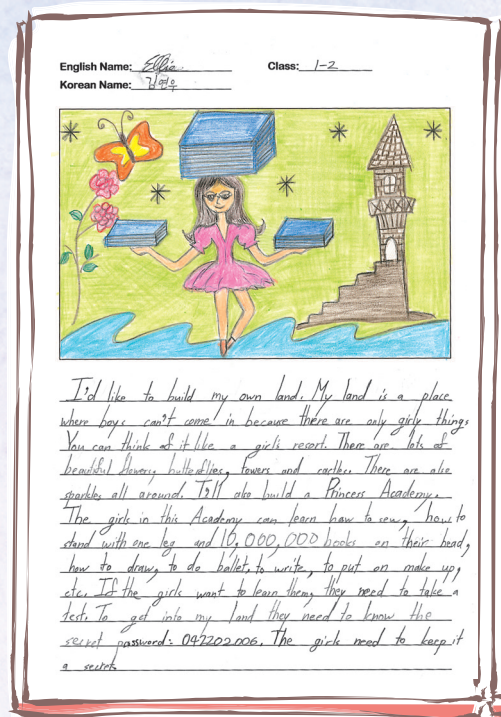 English Name: Ellie Class: 1-2
Korean Name: 김연우
I'd like to build my own land. My land is a place
where boys can't come in because there are only girly things
You can think of it like a girl's resort. There are lots of
beautiful flowers, butterflies, towers and castles. There are also
sparkles all around. I'll also build a Princess Academy.
The girls in this Academy can learn how to sew, how to
stand with one leg and 10,000,000 books on their head,
how to draw, to do ballet, to write, to put on make up,
etc. If the girls want to learn them, they need to take a
test. To get into my land they need to know the
secret password: 042202006. The girls need to keep it
a secret.